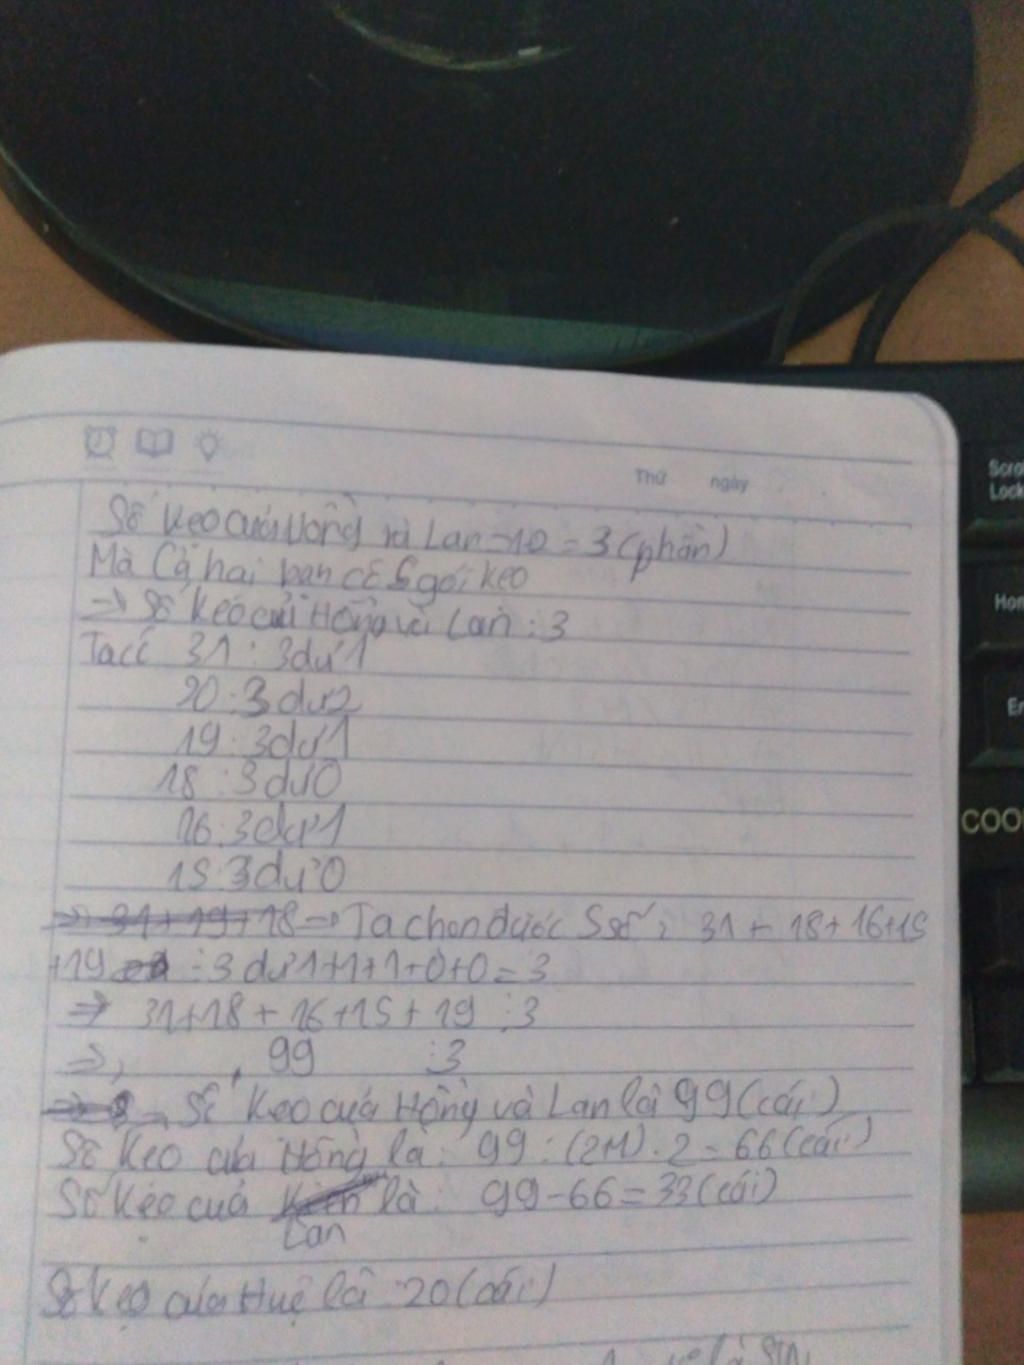 Thứ ngày
Số kẹo của Hồng và Lan = 3 (phần)
Mà Cả hai bạn có 5 gói kẹo
=> Số kẹo của Hồng và Lan : 3
Ta có 31 : 3 dư 1
20 : 3 dư 2
19 : 3 dư 1
18 : 3 dư 0
16 : 3 dư 1
15 : 3 dư 0
=> 31 + 19 + 18 => Ta chọn được 5 số: 31 + 18 + 16 + 15
+19 : 3 dư 1+1+1+0+0 = 3
=> 31+18+16+15+19 : 3
=> 99 : 3
Số kẹo của Hồng và Lan là 99 (cái)
Số kẹo của Hồng là: 99 : (2+1) . 2 = 66 (cái)
Số kẹo của là: 99 - 66 = 33 (cái)
Lan
Số kẹo của Huệ là 20 (cái)
Scro
Lock
Hom
En
COO